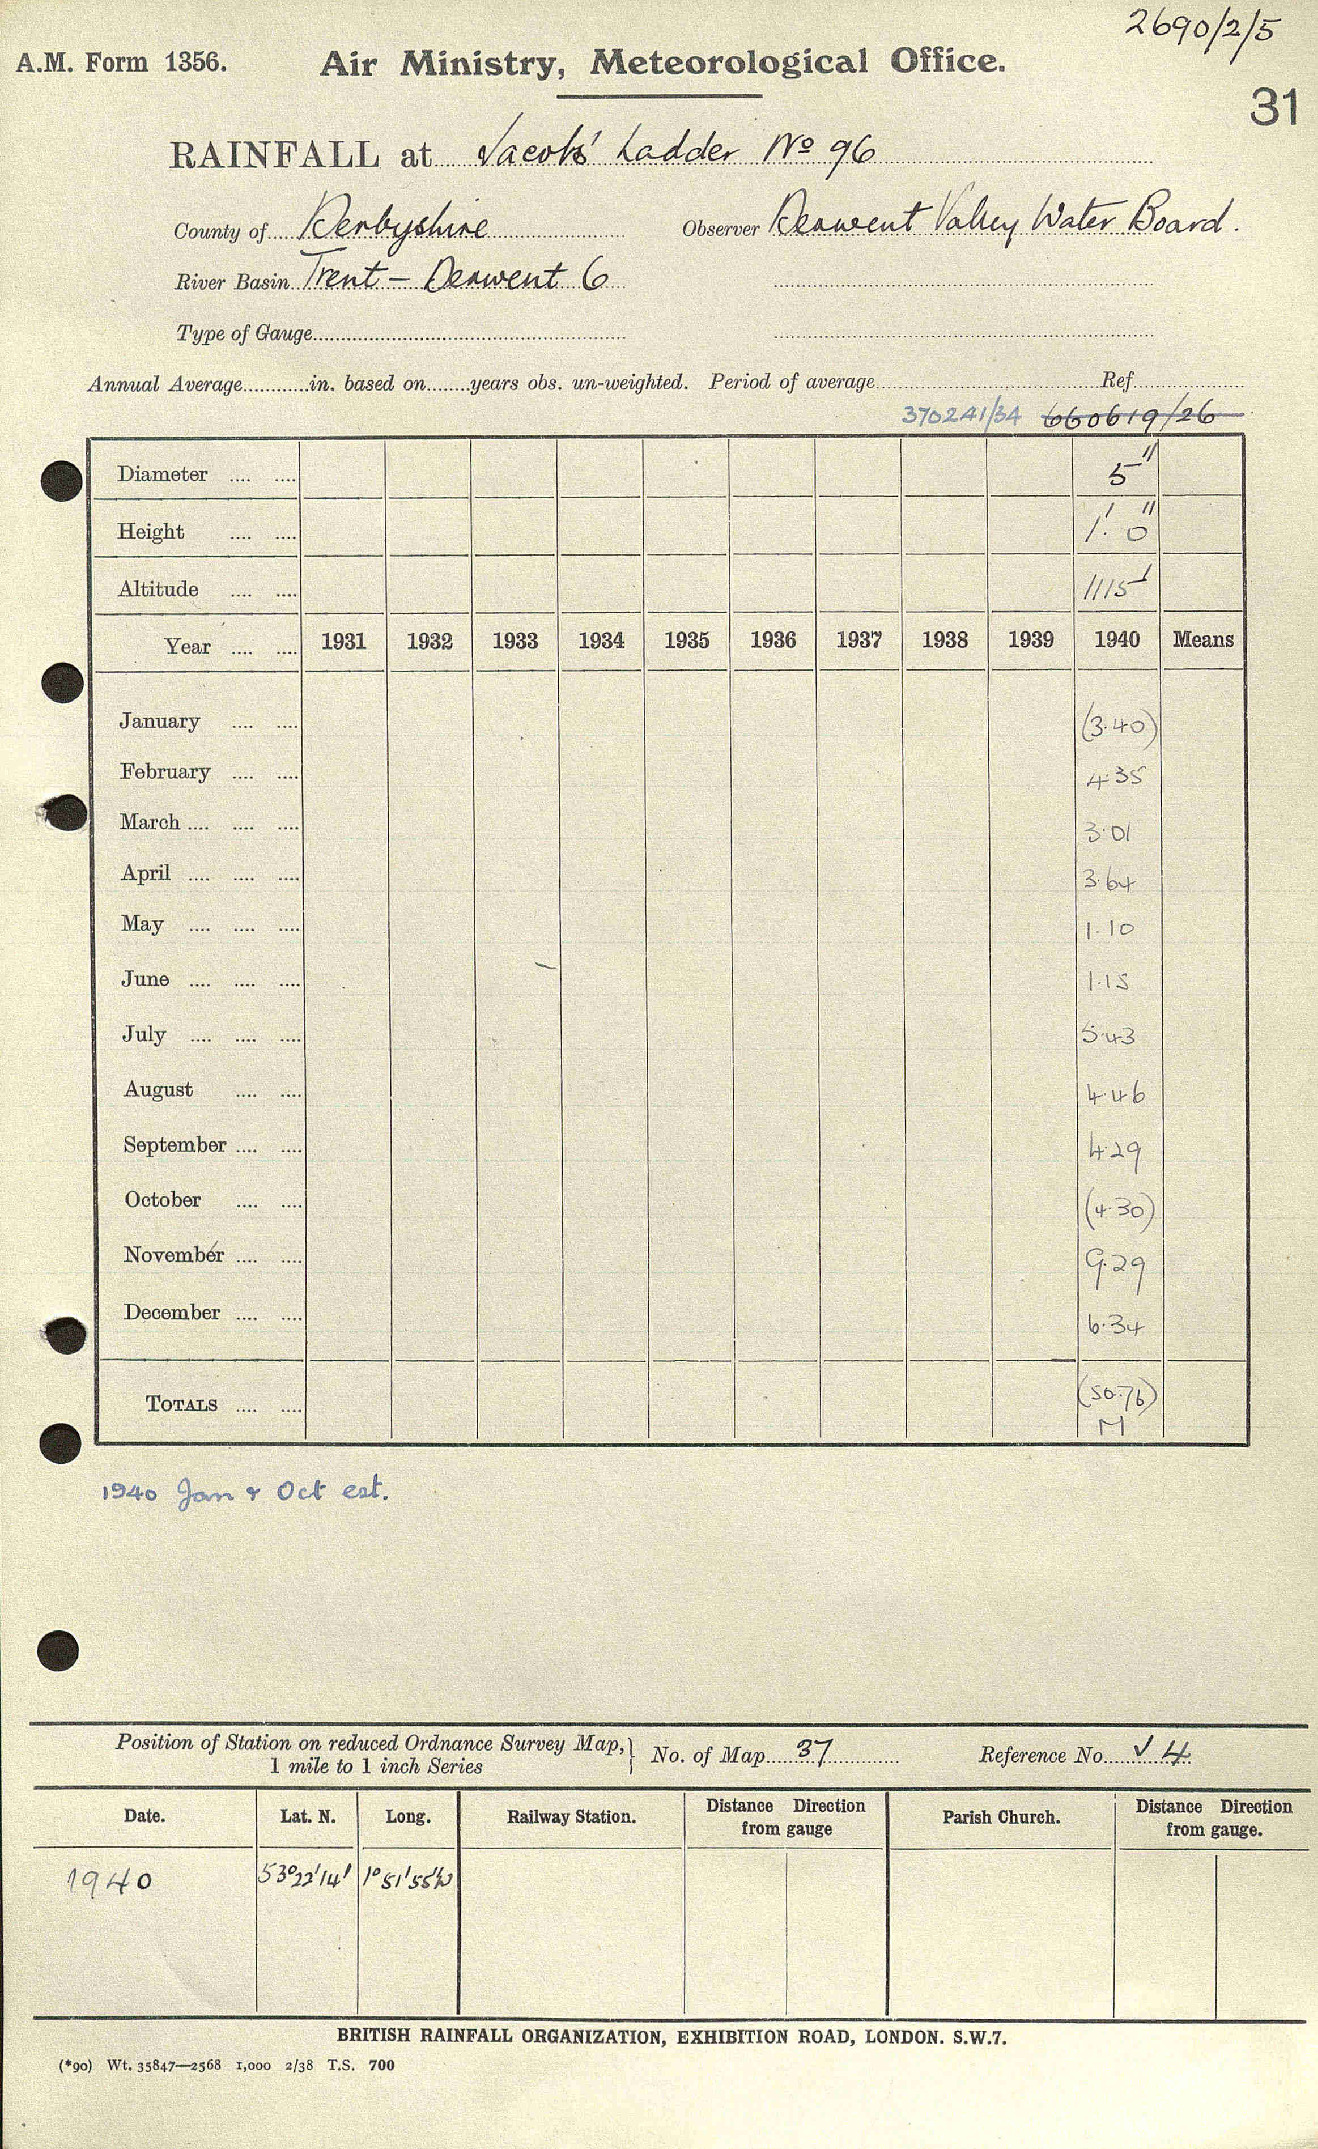 2690/2/5
A.M. Form 1356.
Air Ministry, Meteorological Office.
31
RAINFALL at Jacob's Ladder No 96
County of Derbyshire Observer Derwent Valley Water Board.
River Basin Trent - Derwent 6
Type of Gauge
Annual Average in. based on years obs. un-weighted. Period of average Ref.
370241/34 660619/26
Diameter 5"
Height 1'. 0"
Altitude 1115'
Year 1931 1932 1933 1934 1935 1936 1937 1938 1939 1940 Means
January (3.40)
February 4.35
March 3.01
April 3.64
May 1.10
June 1.15
July 5.43
August 4.46
September 4.29
October (4.30)
November 9.29
December 6.34
TOTALS (50.76)
M
1940 Jan & Oct est.
Position of Station on reduced Ordnance Survey Map,
1 mile to 1 inch Series
No. of Map 37 Reference No. √ 4
Date. Lat. N. Long. Railway Station. Distance Direction from gauge Parish Church. Distance Direction from gauge.
1940 53°22'14' 1°51'55"W
BRITISH RAINFALL ORGANIZATION, EXHIBITION ROAD, LONDON. S.W.7.
(*90) Wt. 35847—2568 1,000 2/38 T.S. 700